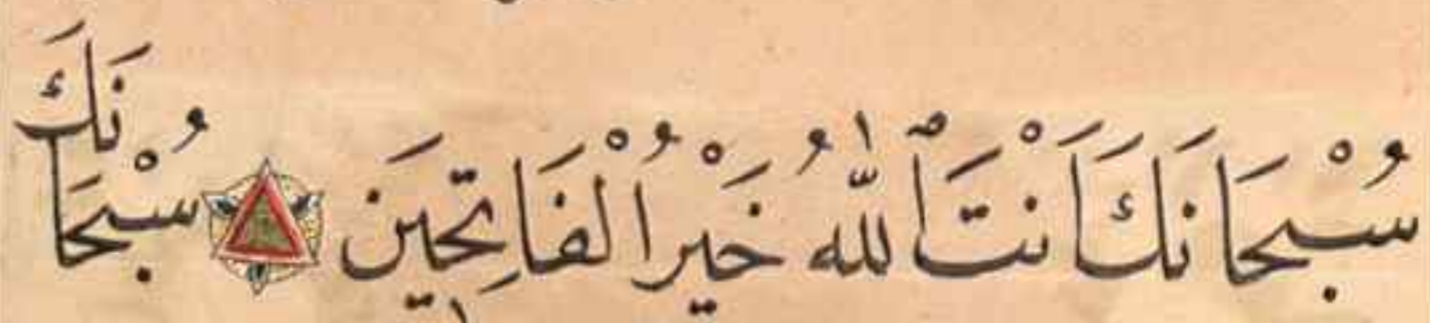 سُبْحَانَكَ أَنْتَ ٱللّٰهُ خَيْرُ الْفَاتِحِينَ سُبْحَانَكَ